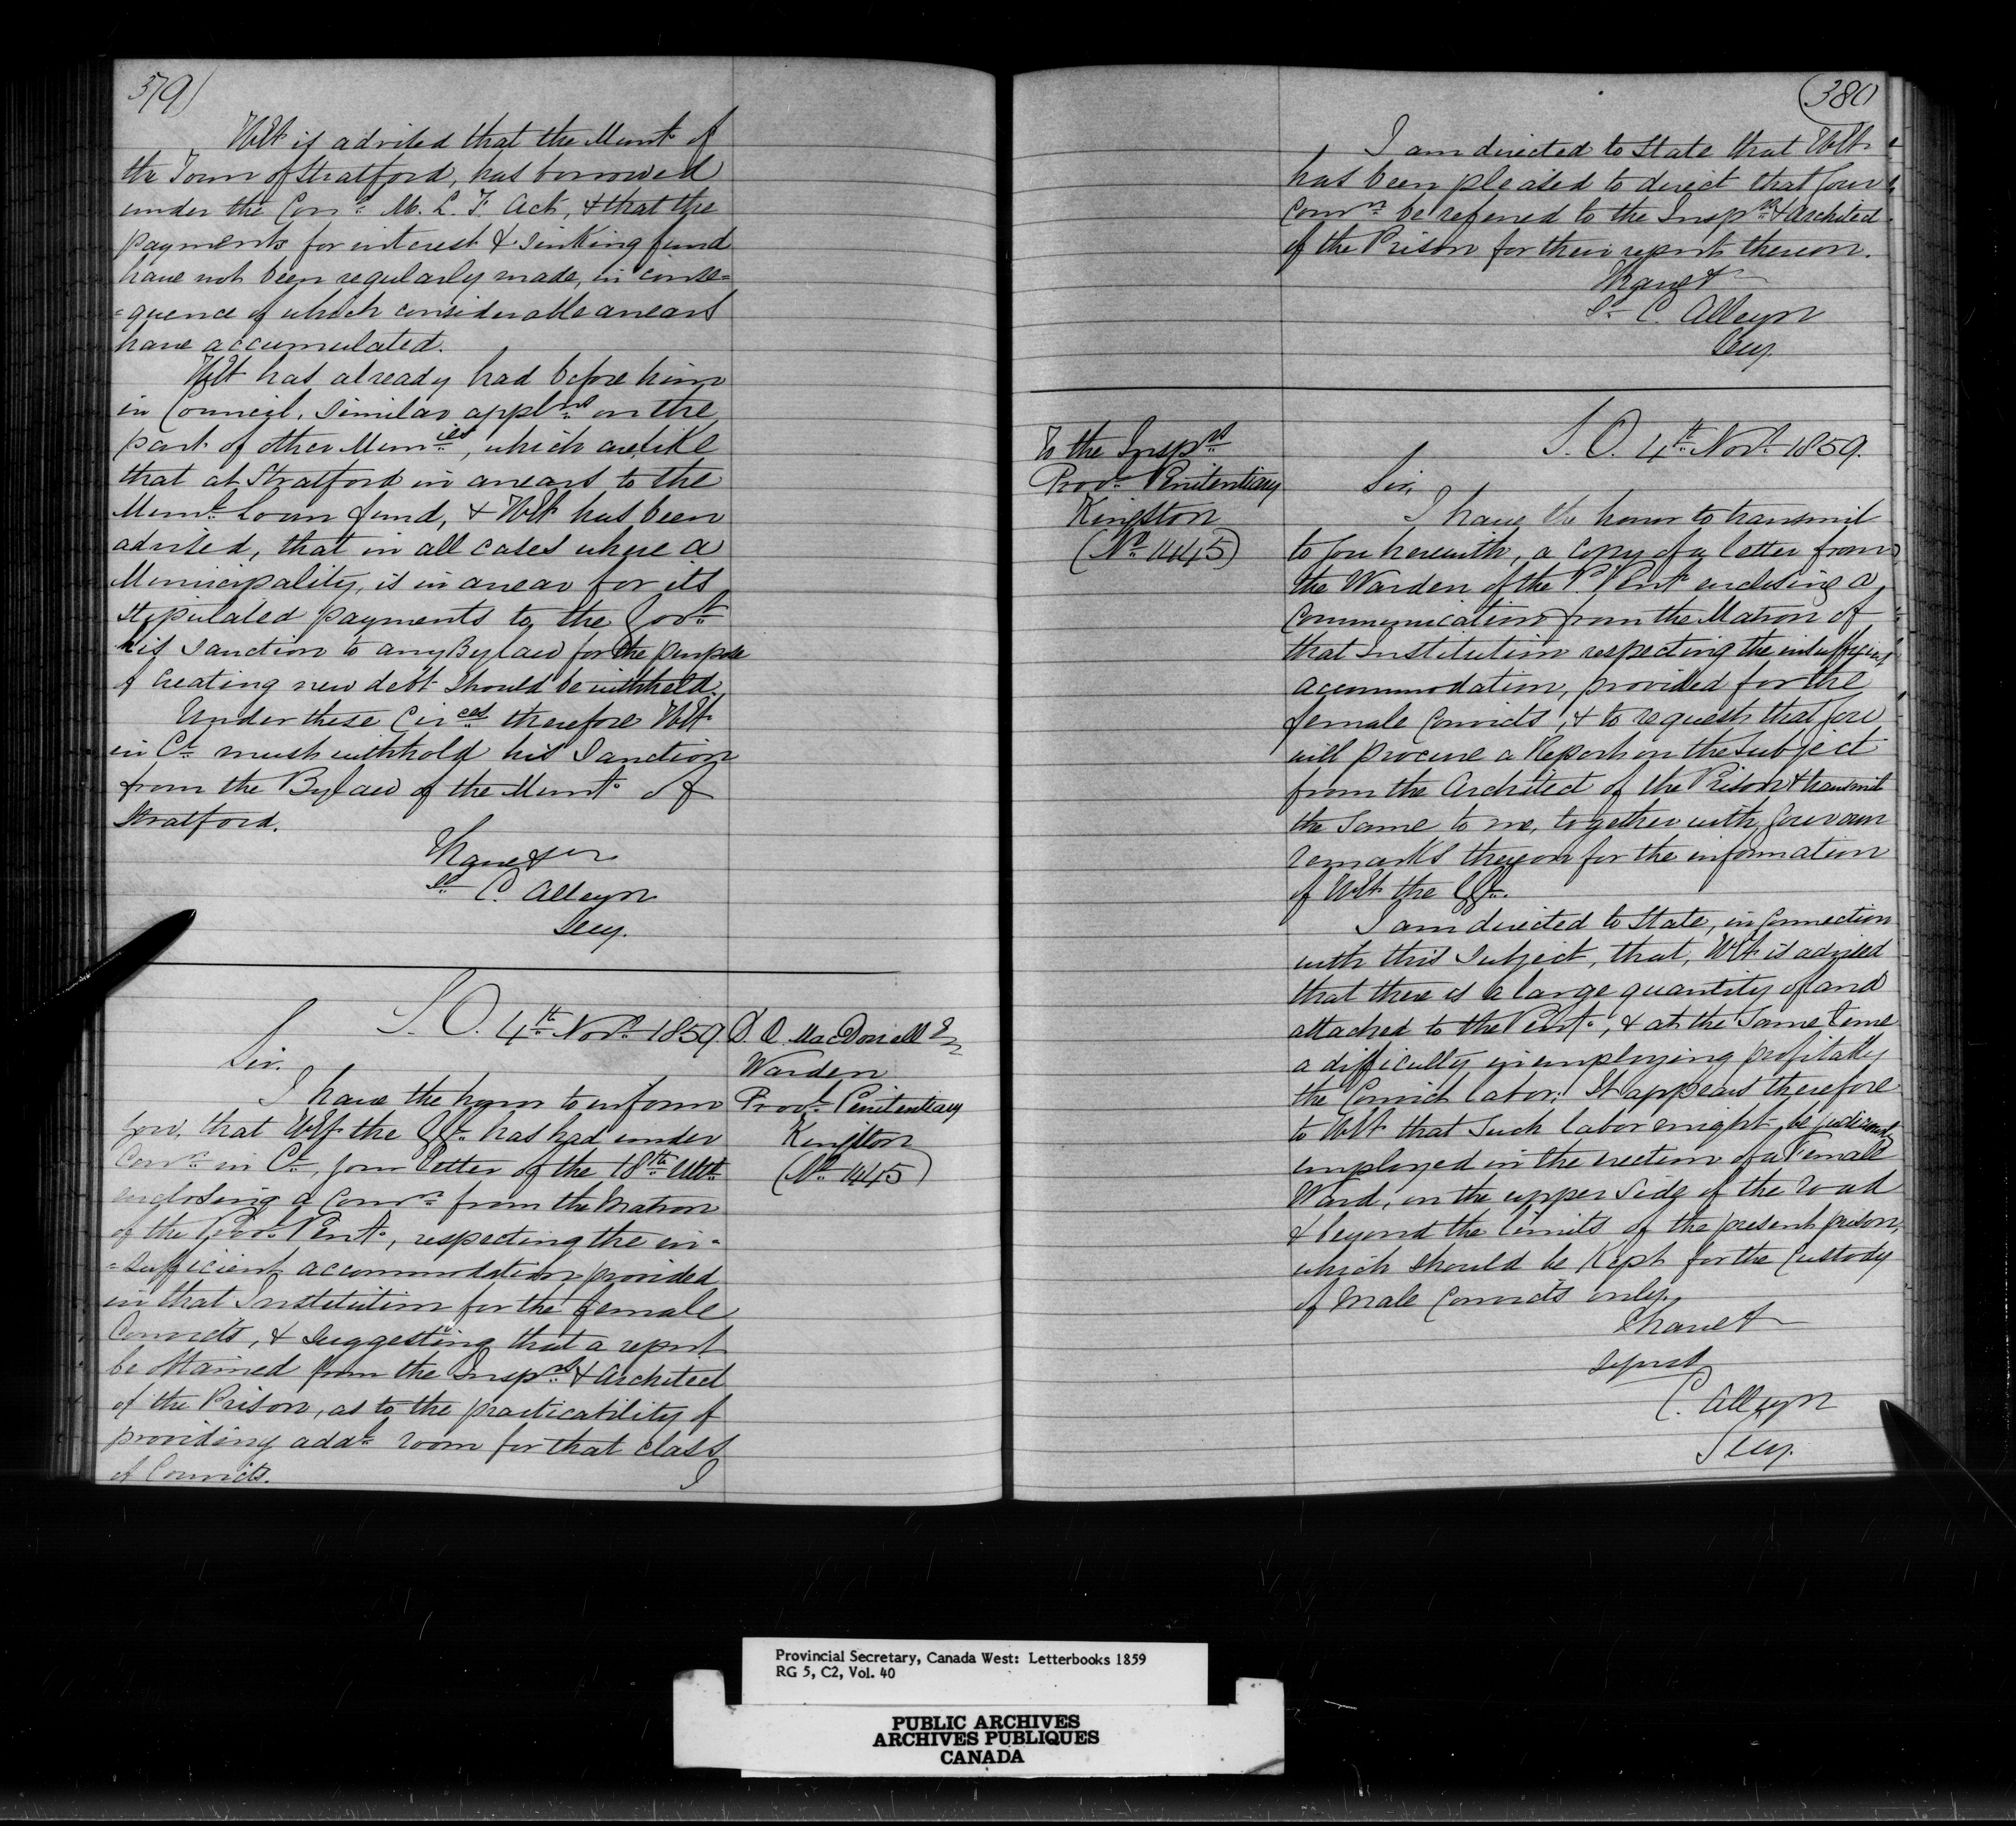 379)
HExy is advised that the Munty of
the Town of Stratford, has borrowed
under the Cons. M. L. F. Act, & that the
payments for interest & sinking fund
have not been regularly made, in conse=
=quence of which considerable arrears
have accumulated.
HExy has already had before him
in Council, similar applns on the
part of other Munies, which are, like
that at Stratford in arrears to the
Munl Loan fund, & HExy has been
advised, that in all cases where a
Municipality, is in arrear for its
stipulated payments to the Govt
his sanction to any Bylaw for the purpose
of creating new debt should be withheld.
Under these Circes therefore HExy
in Cl must withhold his Sanction
from the Bylaw of the Munty of
Stratford.
I have &c
Sd C. Alleyn
Secy.
S. O. 4th Novr 1859
Sir.
I have the honor to inform
you, that HExy the GG. has had under
Conn in Cl, your letter of the 18th Ulto
enclosing a Comn from the Matron
of the Provl Penty, respecting the in=
=sufficient accommodation provided
in that Institution for the female
Convicts, & suggesting that a report
be obtained from the Insprs & Architect
of the Prison, as to the practicability of
providing addl room for that class
of Convicts.
I
D. A. MacDonell Er
Warden
Provl Penitentiary
Kingston
(No 1445)
(380)
I am directed to state that HExy
has been pleased to direct that your
Comn be referred to the Insprs & Architect
of the Prison for their report thereon.
I have &
Sd C. Alleyn
Secy.
To the Insprs
Provl Penitentiary
Kingston
(No 1445)
S. O. 4th Novr 1859.
Sir,
I have the honor to transmit
to you herewith, a copy of a letter from
the Warden of the P. Penty enclosing a
Communication from the Matron of
that Institution respecting the insufficient
accommodation, provided for the
female Convicts, & to request that you
will procure a Report on the subject
from the Architect of the Prison & transmit
the same to me, together with your own
remarks thereon for the information
of HExy the GG.
I am directed to State, in Connection
with this subject, that, HExy is advised
that there is a large quantity of land
attached to the Penty, & at the same time
a difficulty in employing profitably
the Convict labor. It appears therefore
to HExy that such labor might be judiciously
employed in the erection of a Female
Ward, on the upper side of the road
& beyond the limits of the present prison,
which should be kept for the Custody
of male Convicts only.
I have &
signed
C. Alleyn
Secy.
Provincial Secretary, Canada West: Letterbooks 1859
RG 5, C2, Vol. 40
PUBLIC ARCHIVES
ARCHIVES PUBLIQUES
CANADA